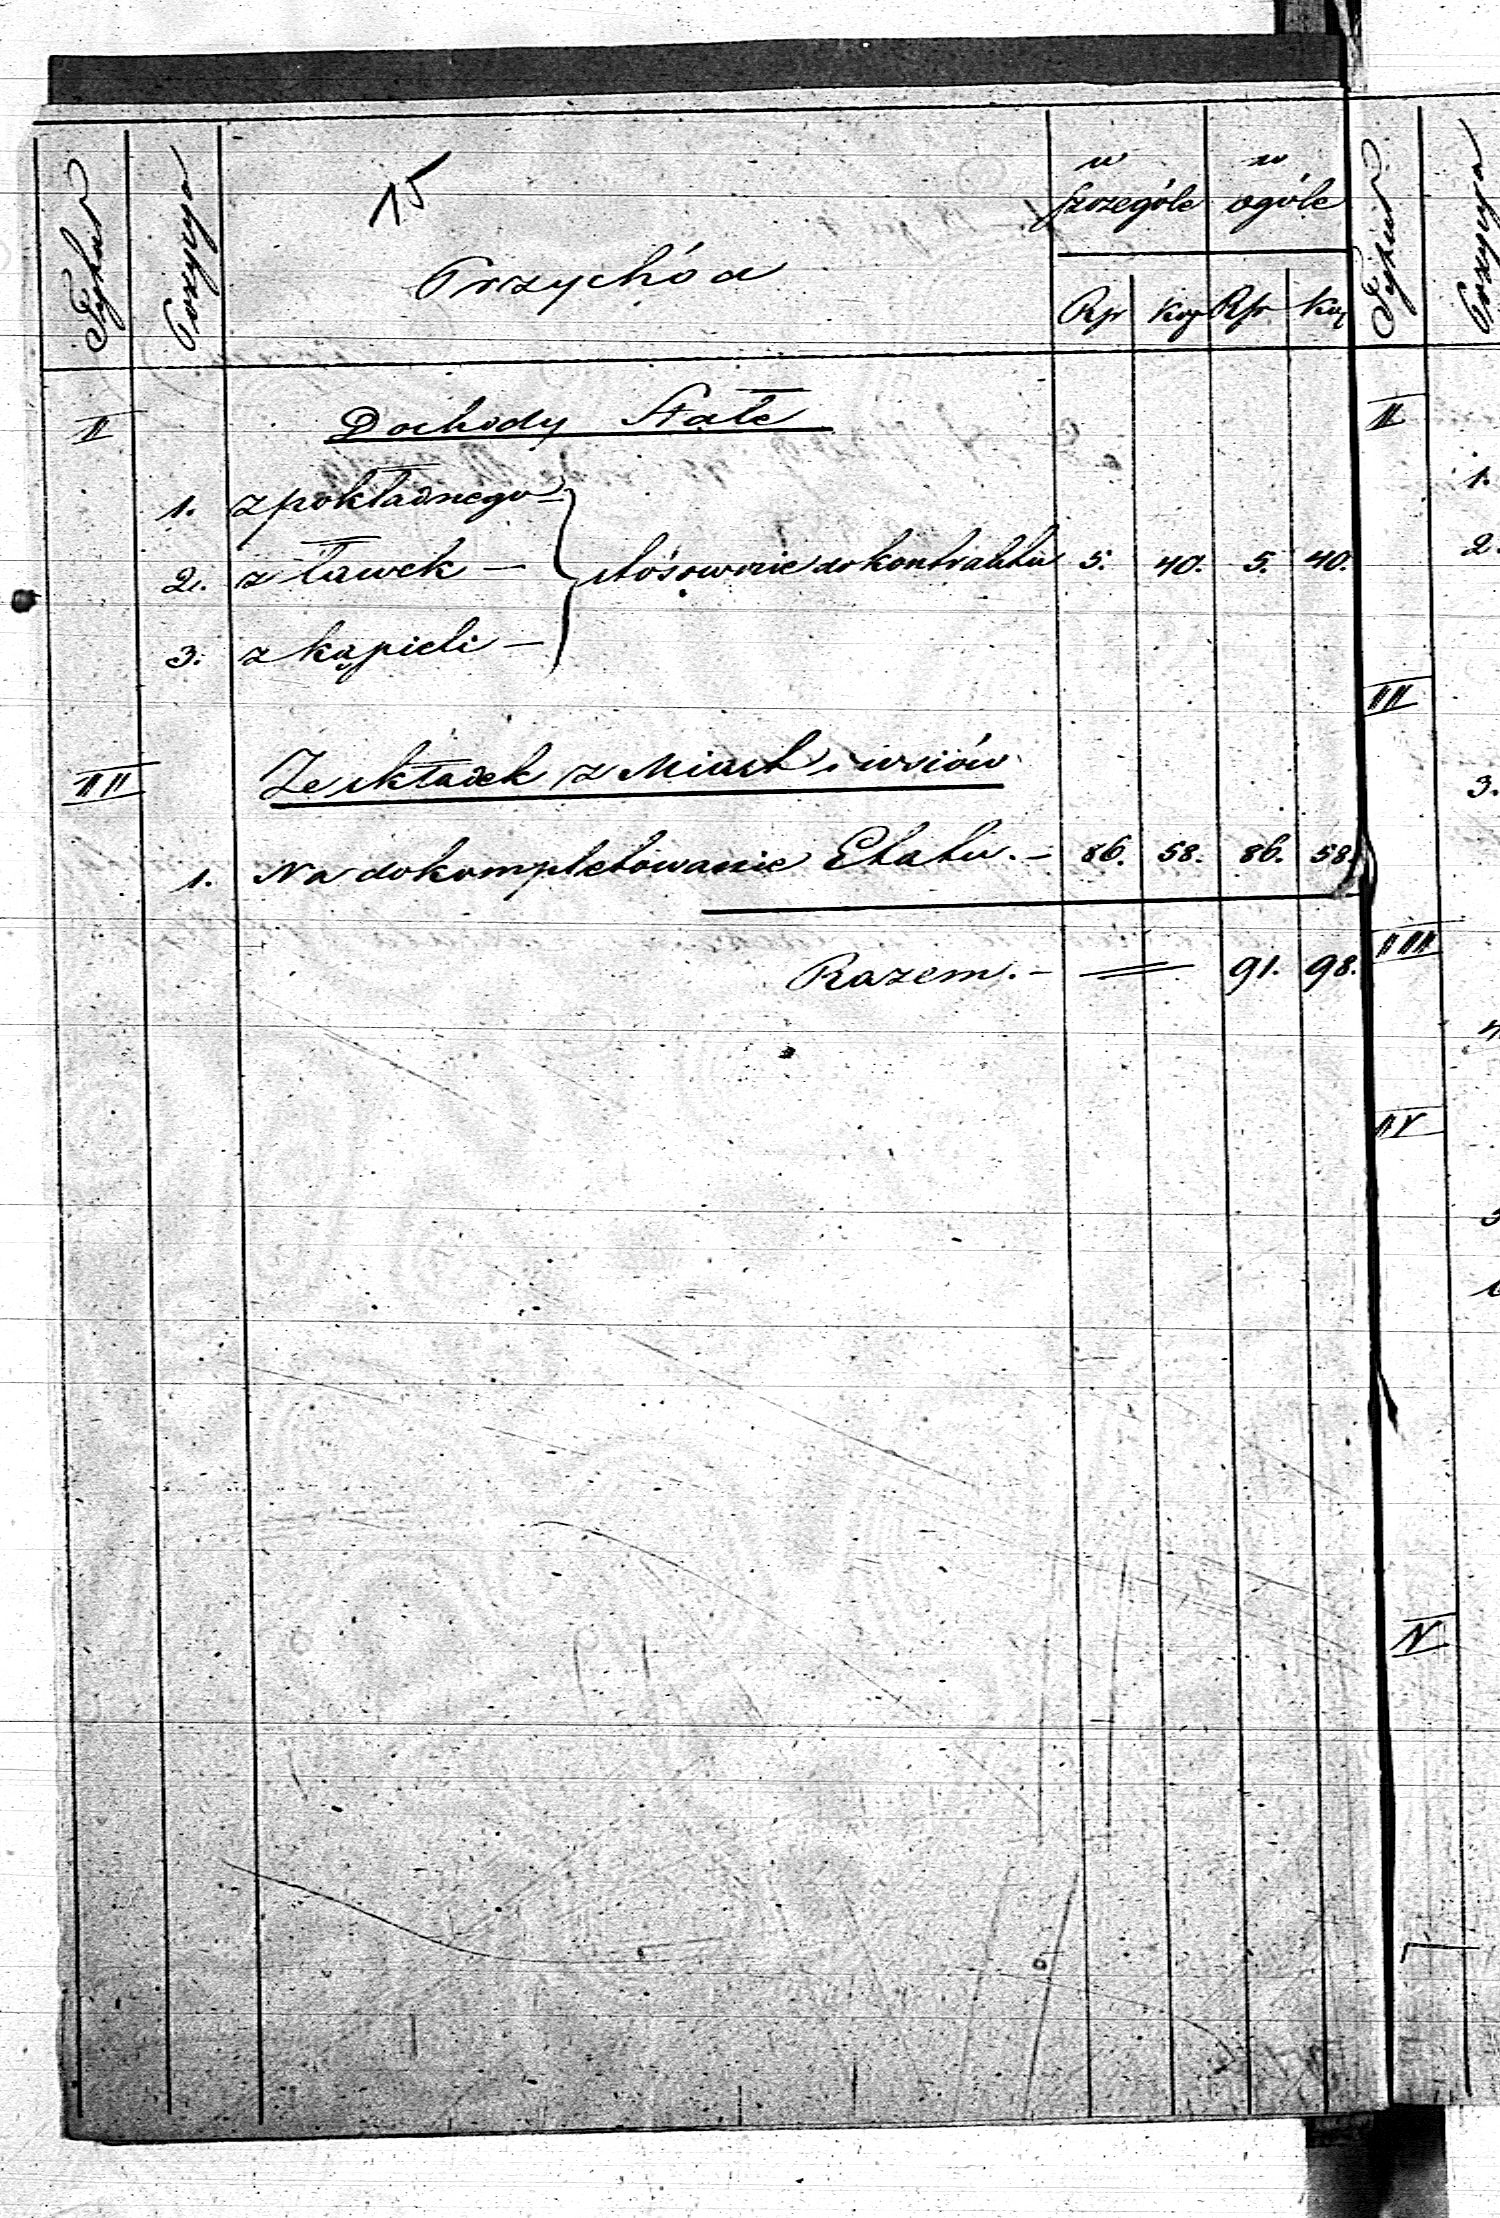 Tytuł Pozycya 15 w szczególe w ogóle Tytuł Pozycya
Przychód
Rsr Kop Rsr Kop
II Dochody Stałe II
1. z pokładnego – 1.
2. z ławek – stósownie do kontraktu 5. 40. 5. 40. 2.
3. z kąpieli –
III
III Ze składek z Miast i wsiów 3.
1. Na dokompletowanie Etatu. – 86. 58. 86. 58.
Razem. – = 91. 98. IIII
4
IV
5
V